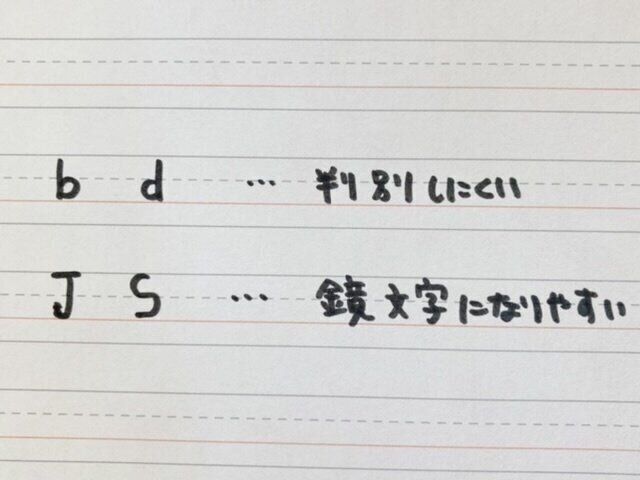 b d … 判別しにくい
J S … 鏡文字になりやすい